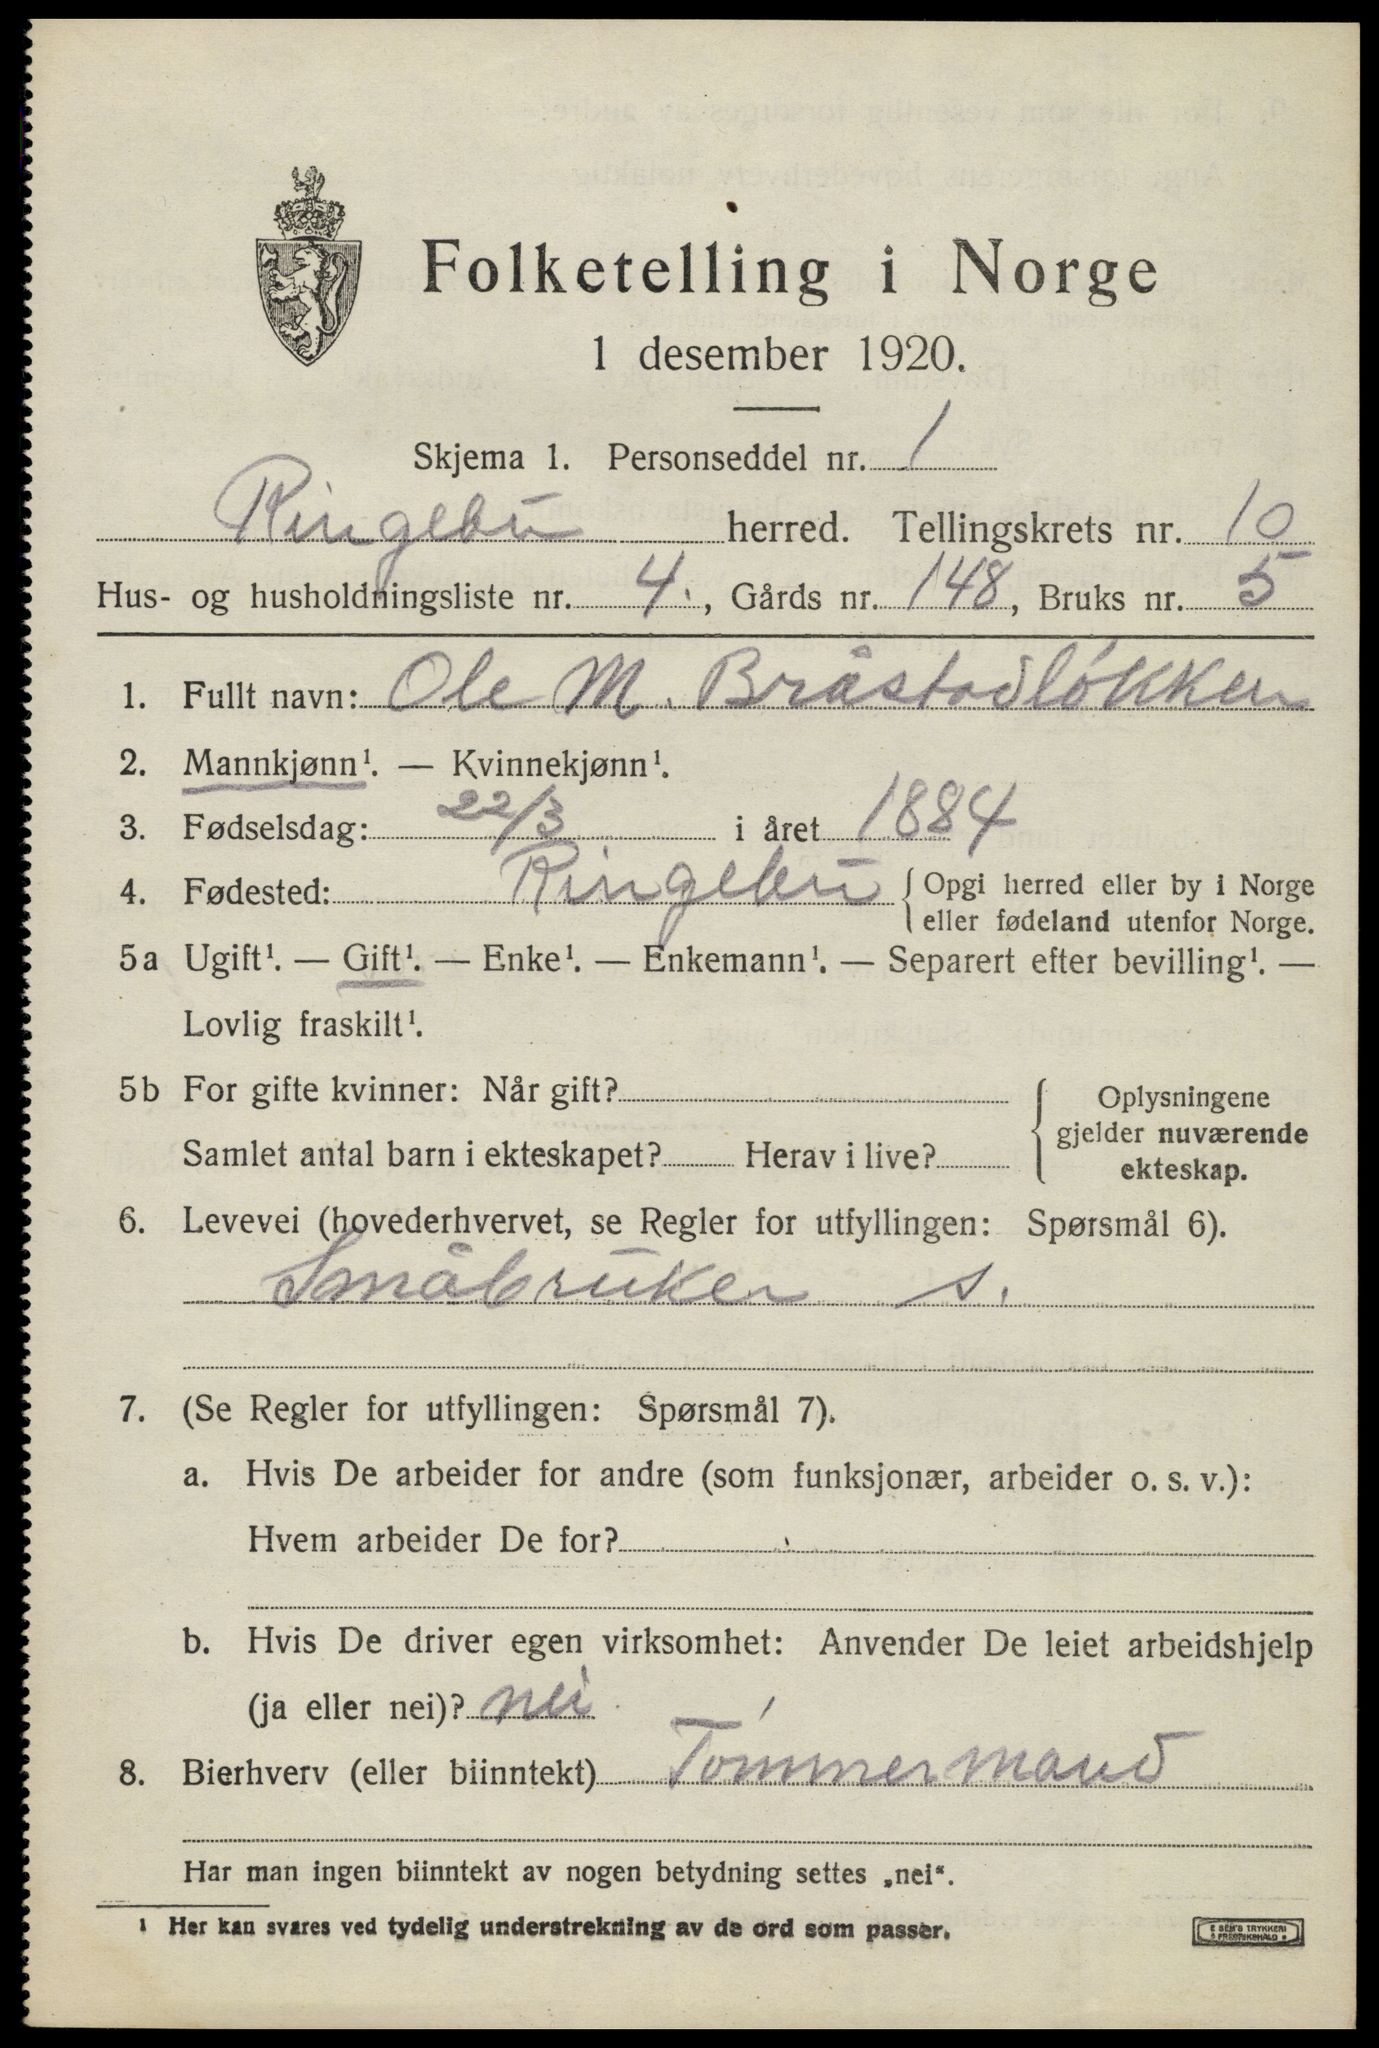 Folketelling i Norge
1 desember 1920.
Skjema 1. Personseddel nr. 1
Ringebu herred. Tellingskrets nr. 10
Hus- og husholdningsliste nr. 4., Gårds nr. 148, Bruks nr. 5
1. Fullt navn: Ole M. Bråstadløkken
2. Mannkjønn¹. — Kvinnekjønn¹.
3. Fødselsdag: 22/3 i året 1884
4. Fødested: Ringebu { Opgi herred eller by i Norge
eller fødeland utenfor Norge.
5a Ugift¹. — Gift¹. — Enke¹. — Enkemann¹. — Separert efter bevilling¹. —
Lovlig fraskilt¹.
5b For gifte kvinner: Når gift?
Samlet antal barn i ekteskapet? Herav i live?
Oplysningene
gjelder nuværende
ekteskap.
6. Levevei (hovederhvervet, se Regler for utfyllingen: Spørsmål 6).
Småbruker s.
7. (Se Regler for utfyllingen: Spørsmål 7).
a. Hvis De arbeider for andre (som funksjonær, arbeider o. s. v.):
Hvem arbeider De for?
b. Hvis De driver egen virksomhet: Anvender De leiet arbeidshjelp
(ja eller nei)? nei
8. Bierhverv (eller biinntekt) Tómmermand
Har man ingen biinntekt av nogen betydning settes „nei“.
¹ Her kan svares ved tydelig understrekning av de ord som passer.
E SEM'S TRYKKERI
FREDRIKSHALD